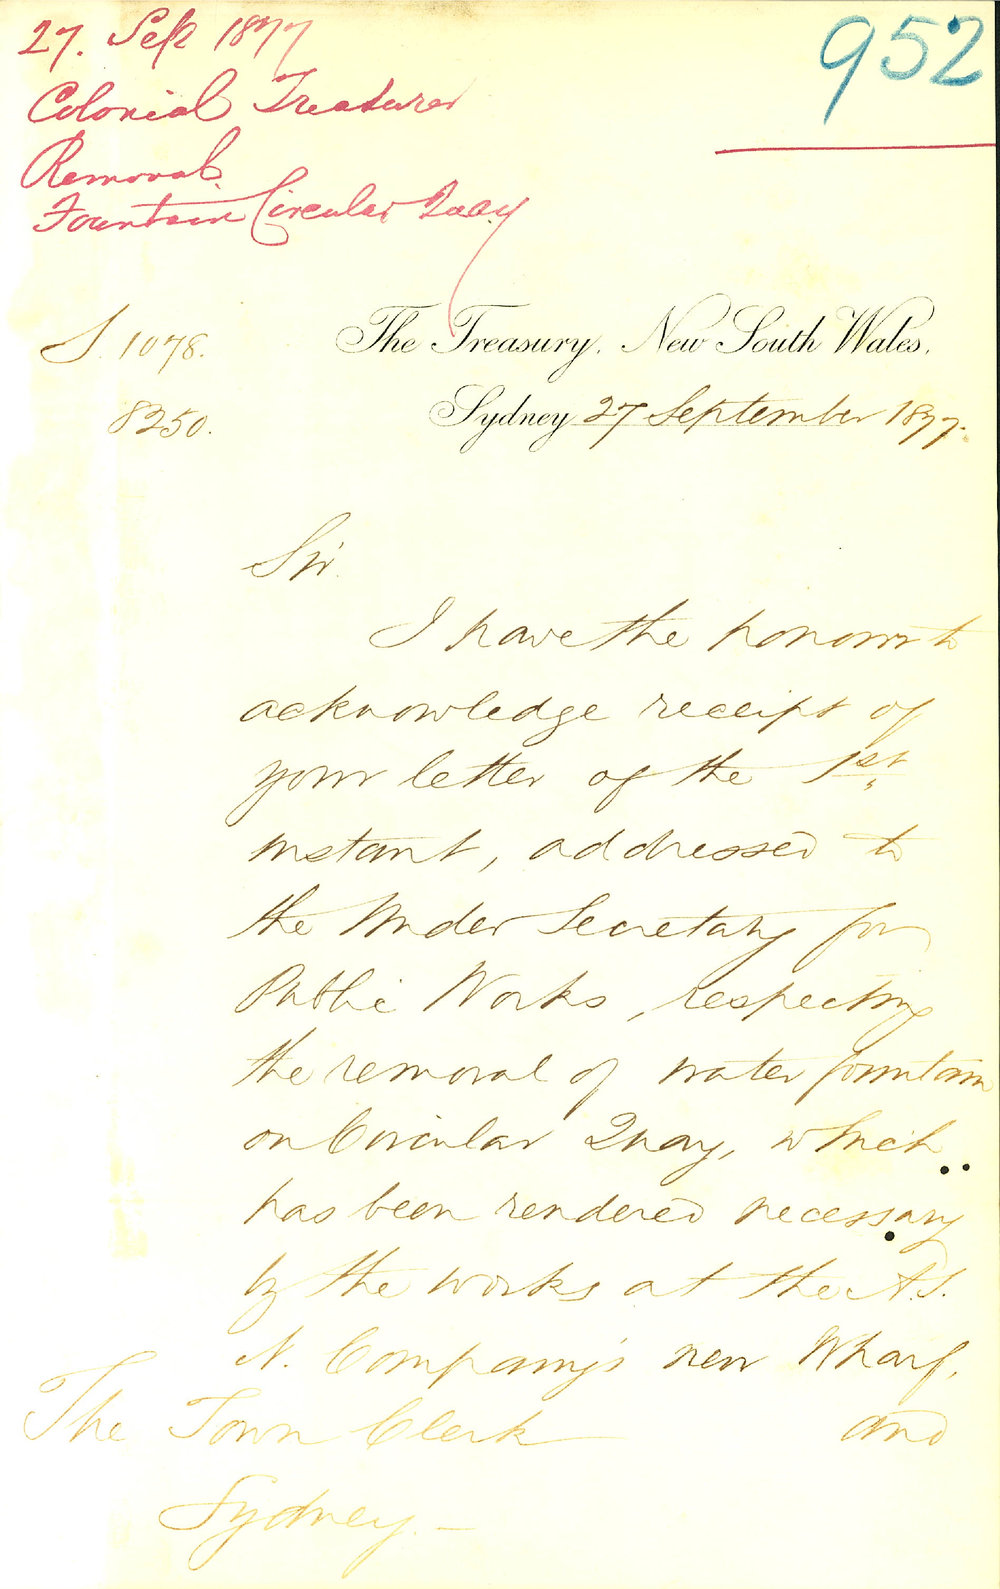 27. Sep 1877
952
Colonial Treasurer
Removal
Fountain Circular Quay
S. 1078.
The Treasury, New South Wales,
8250.
Sydney 27 September 1877.
Sir
I have the honour to
acknowledge receipt of
your letter of the 1st
instant, addressed to
the Under Secretary for
Public Works, respecting
the removal of water fountain
on Circular Quay, which
has been rendered necessary
by the works at the A.S.
N. Company's new Wharf,
and
The Town Clerk
Sydney.